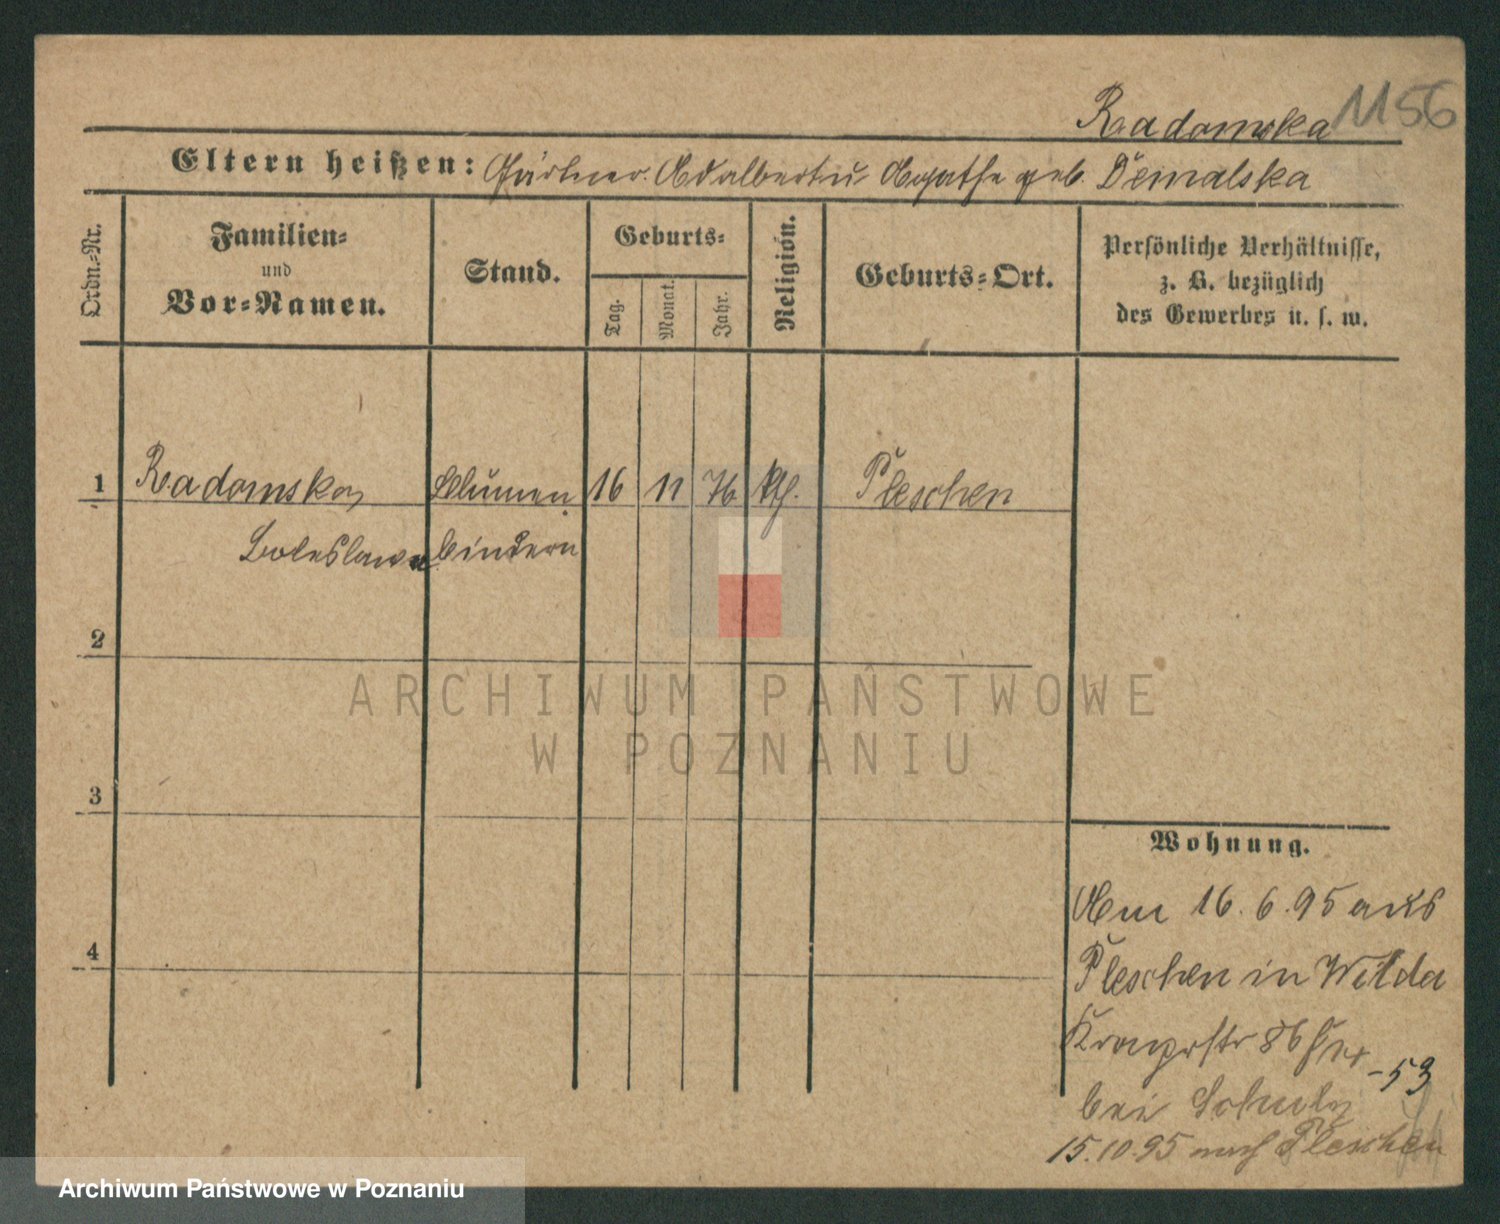 Radomska 1156
Eltern heißen: Gärtner Adalbert u. Agathe geb.
Ordn.-Nr.
Familien-
und
Vor-Namen.
Stand.
Geburts-
Tag.
Monat.
Jahr.
Religion.
Geburts-Ort.
Persönliche Verhältnisse,
z. B. bezüglich
des Gewerbes u. s. w.
1 Radomska, Blumen 16 11 76 kth. Pleschen
Boleslawa binderin
2
3
4
Wohnung.
Am 16.6.95 aus
Pleschen in Wilda
Kronprstr 86
-53
bei Schulz
15.10.95 nach Pleschen
ARCHIWUM PAŃSTWOWE
W POZNANIU
Archiwum Państwowe w Poznaniu